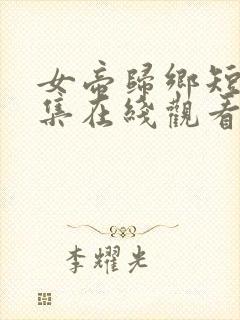 女帝歸鄉短
集在綫觀看
李耀光